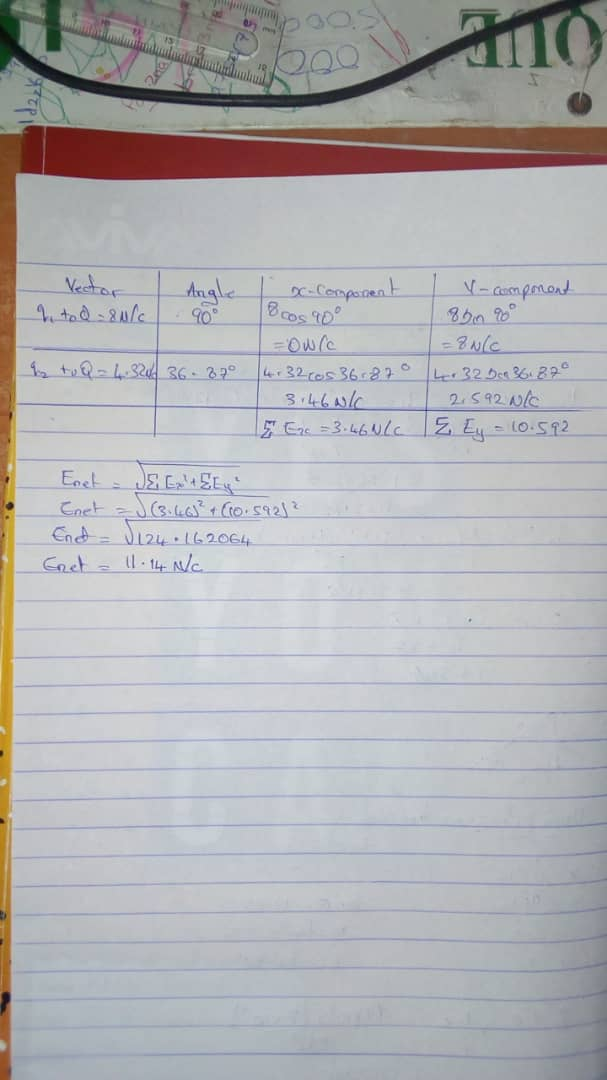 QUE
Vector Angle x-Component Y-component
q₁ to Q = 8N/C 90° 8cos90° 8sin 90°
= 0N/C = 8N/C
q₂ to Q = 4.32N/C 36.87° 4.32cos36.87° 4.32 sin36.87°
3.46 N/C 2.592 N/C
Σ Ex = 3.46N/C Σ Ey = 10.592
Enet = √ΣEx²+ΣEy²
Enet = √(3.46)² + (10.592)²
Enet = √124.162064
Enet = 11.14 N/C